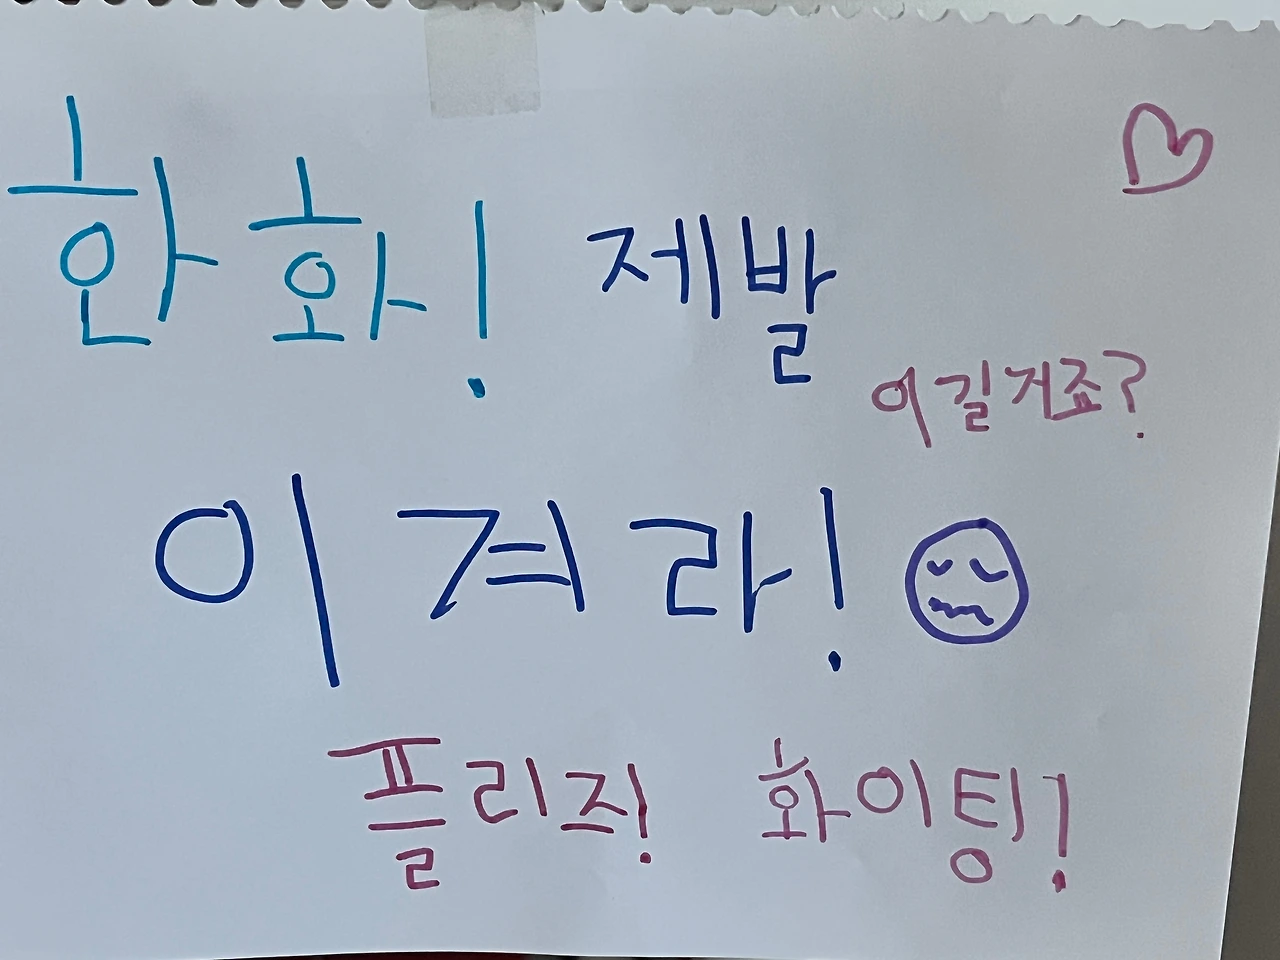 한화! 제발
이길거죠?
이겨라!
플리즈! 화이팅!